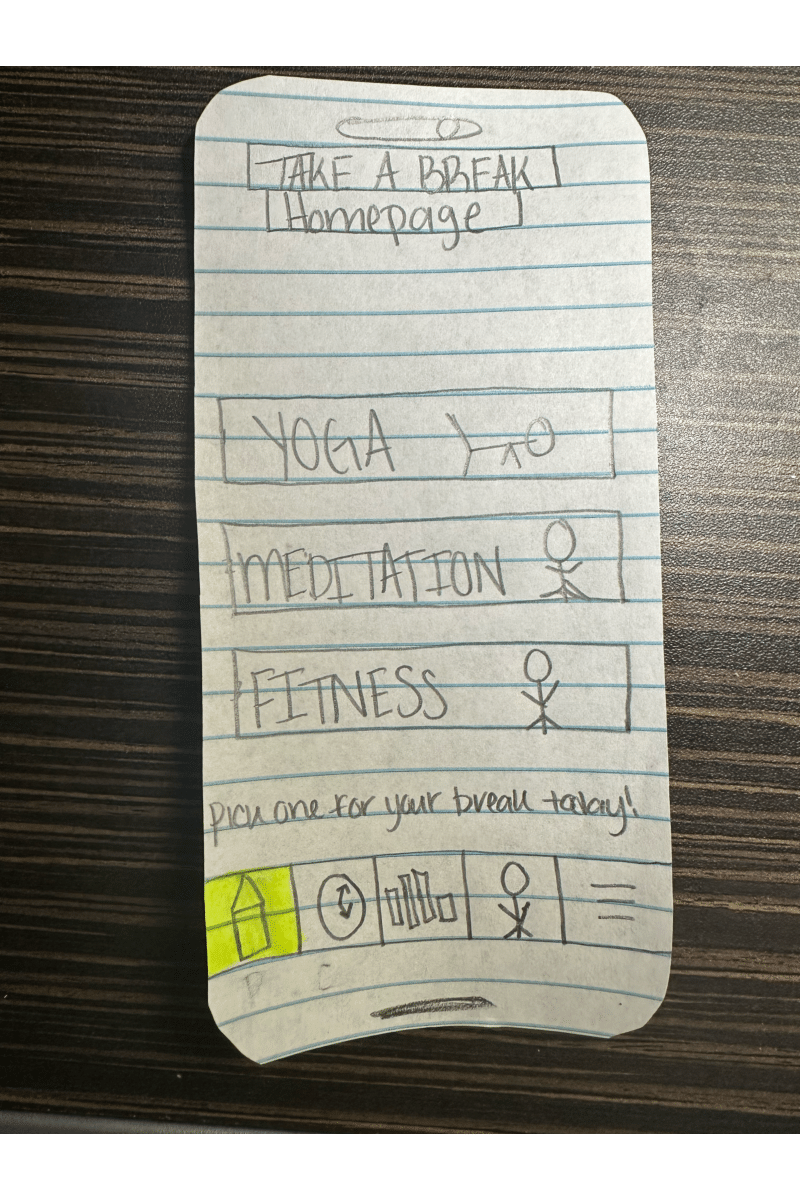 TAKE A BREAK
Homepage
YOGA
MEDITATION
FITNESS
Pick one for your break today!
P C